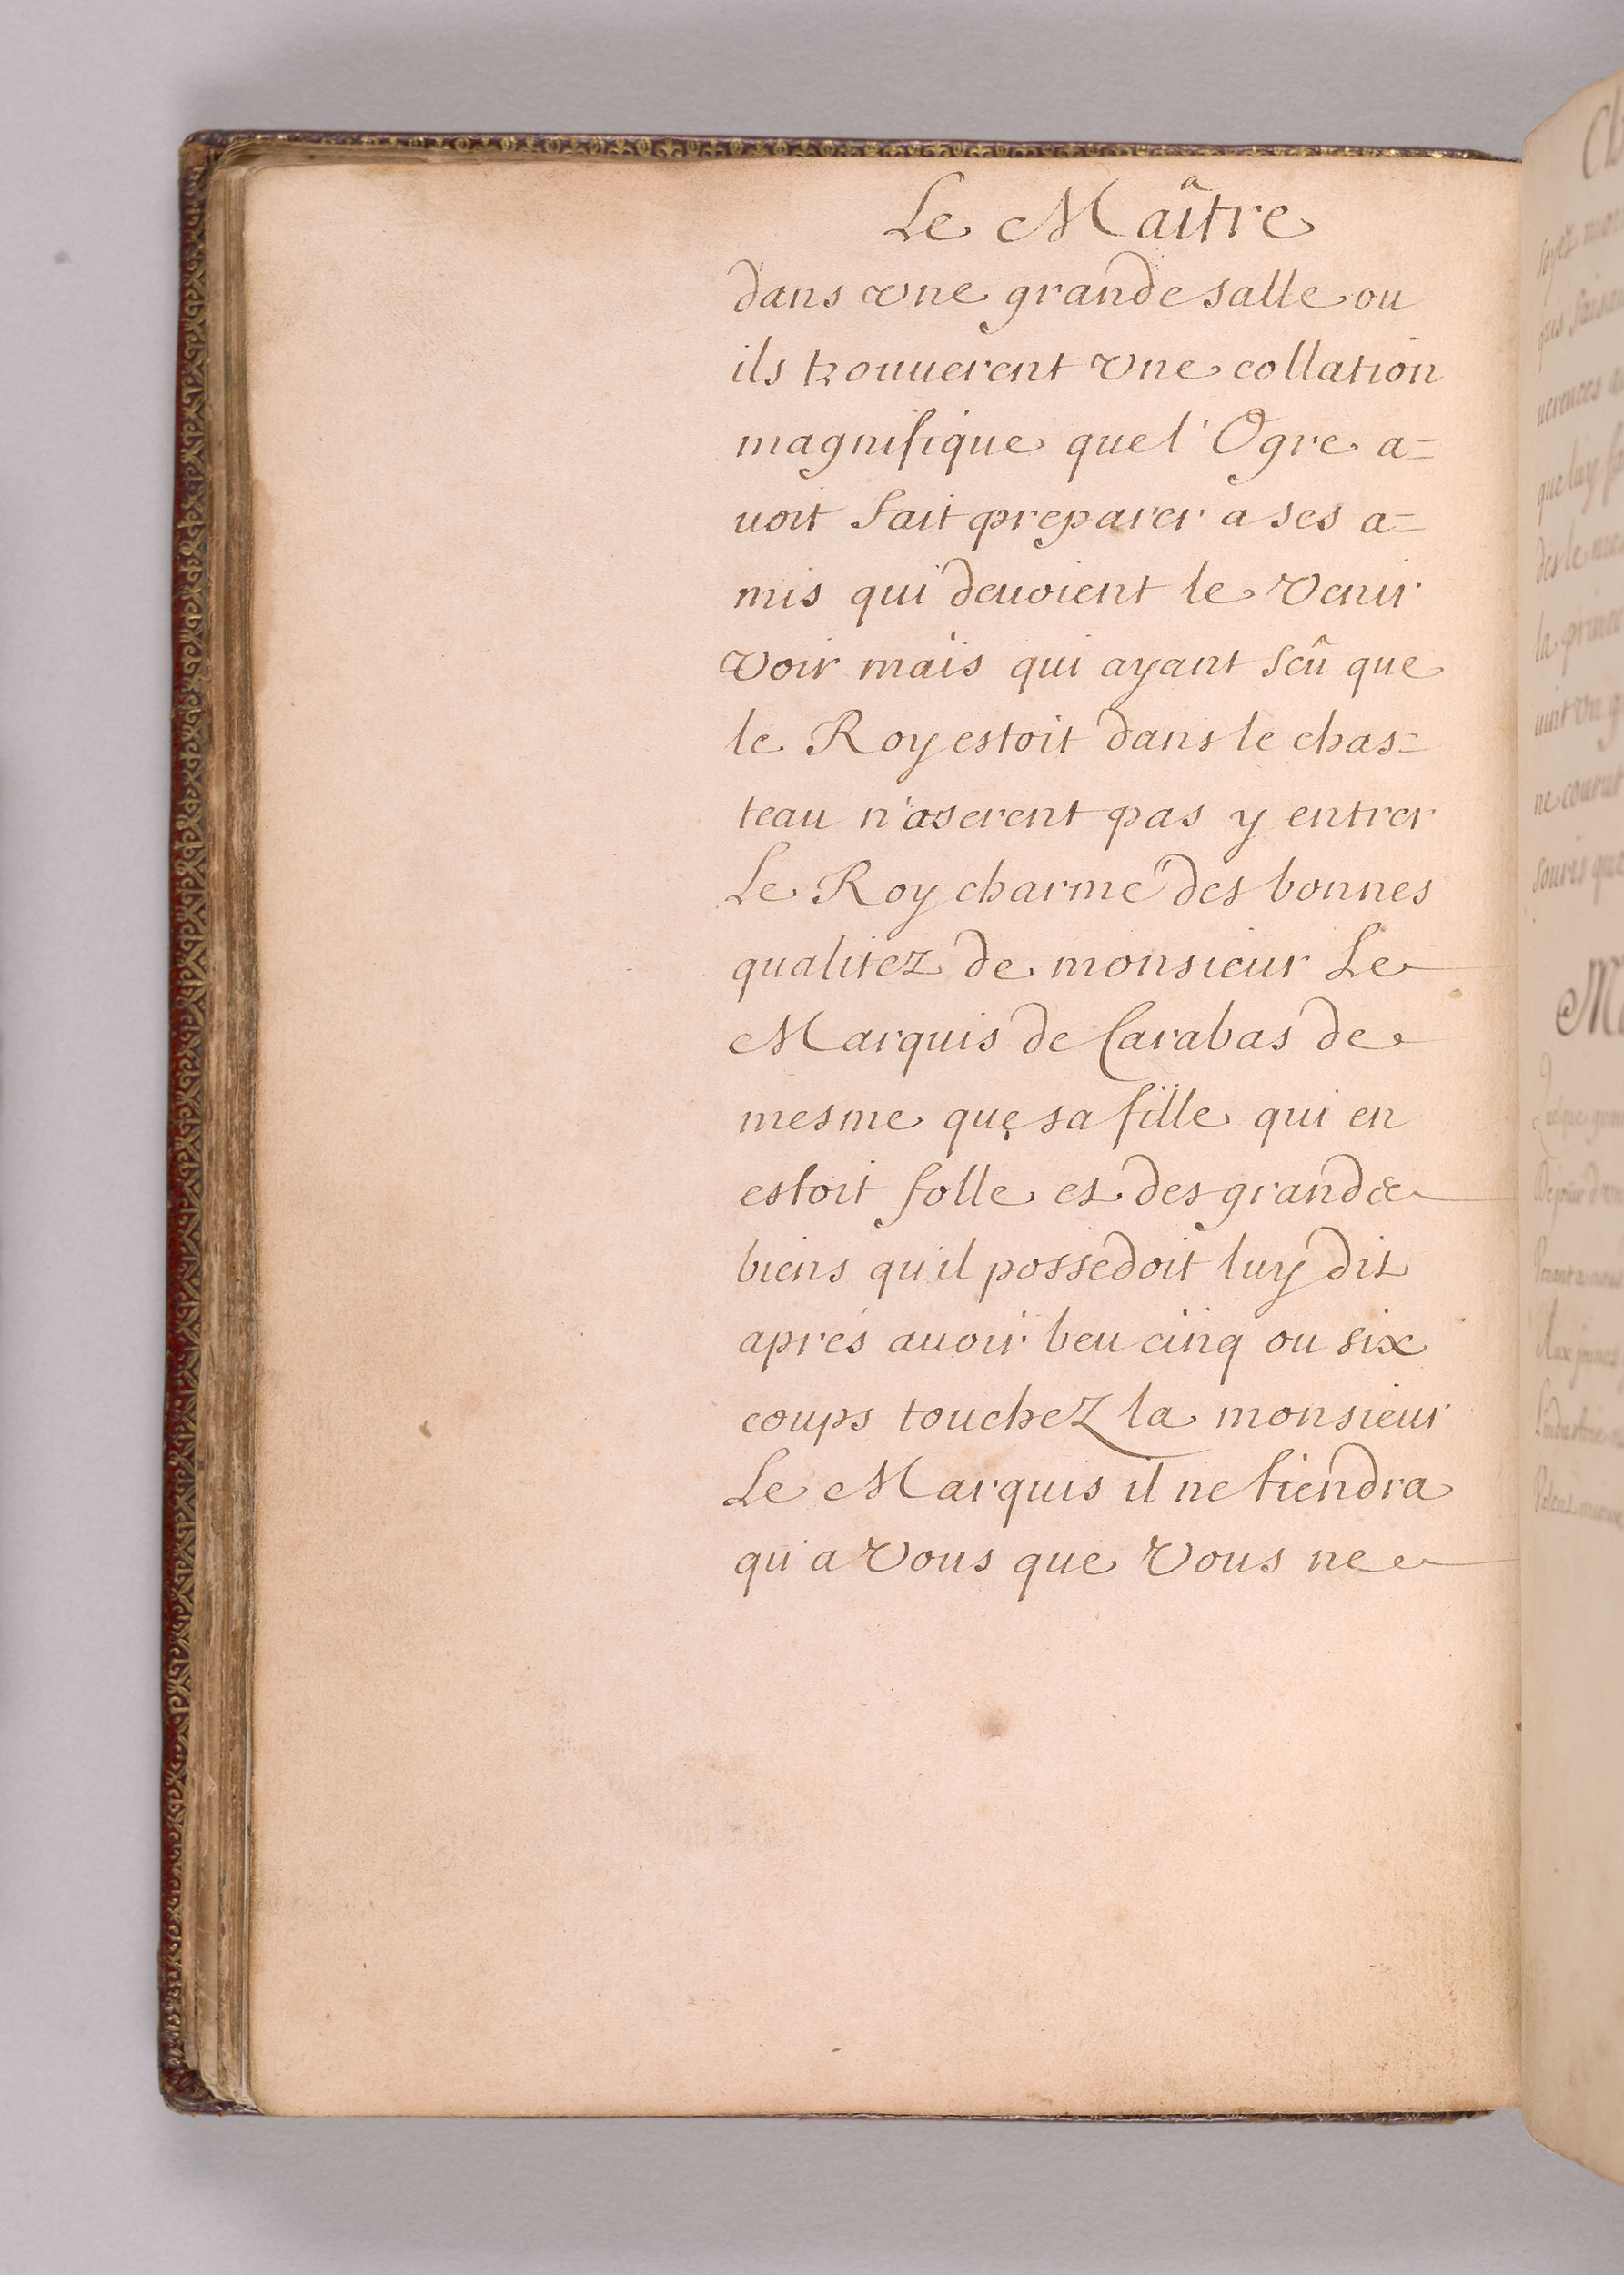 Le Maître
dans une grande salle ou
ils trouuerent vne collation
magnifique que l'Ogre a=
uoit fait preparer a ses a=
mis qui deuoient le venir
voir mais qui ayant sçû que
le Roy estoit dans le chas=
teau n'oserent pas y entrer
Le Roy charmé des bonnes
qualitez de monsieur Le
Marquis de Carabas de
mesme que sa fille qui en
estoit folle et des grands
biens qu'il possedoit luy dit
aprés auoir beu cinq ou six
coups touchez la monsieur
Le Marquis il ne tiendra
qu'a vous que vous ne
la prince
ne courut
souris que